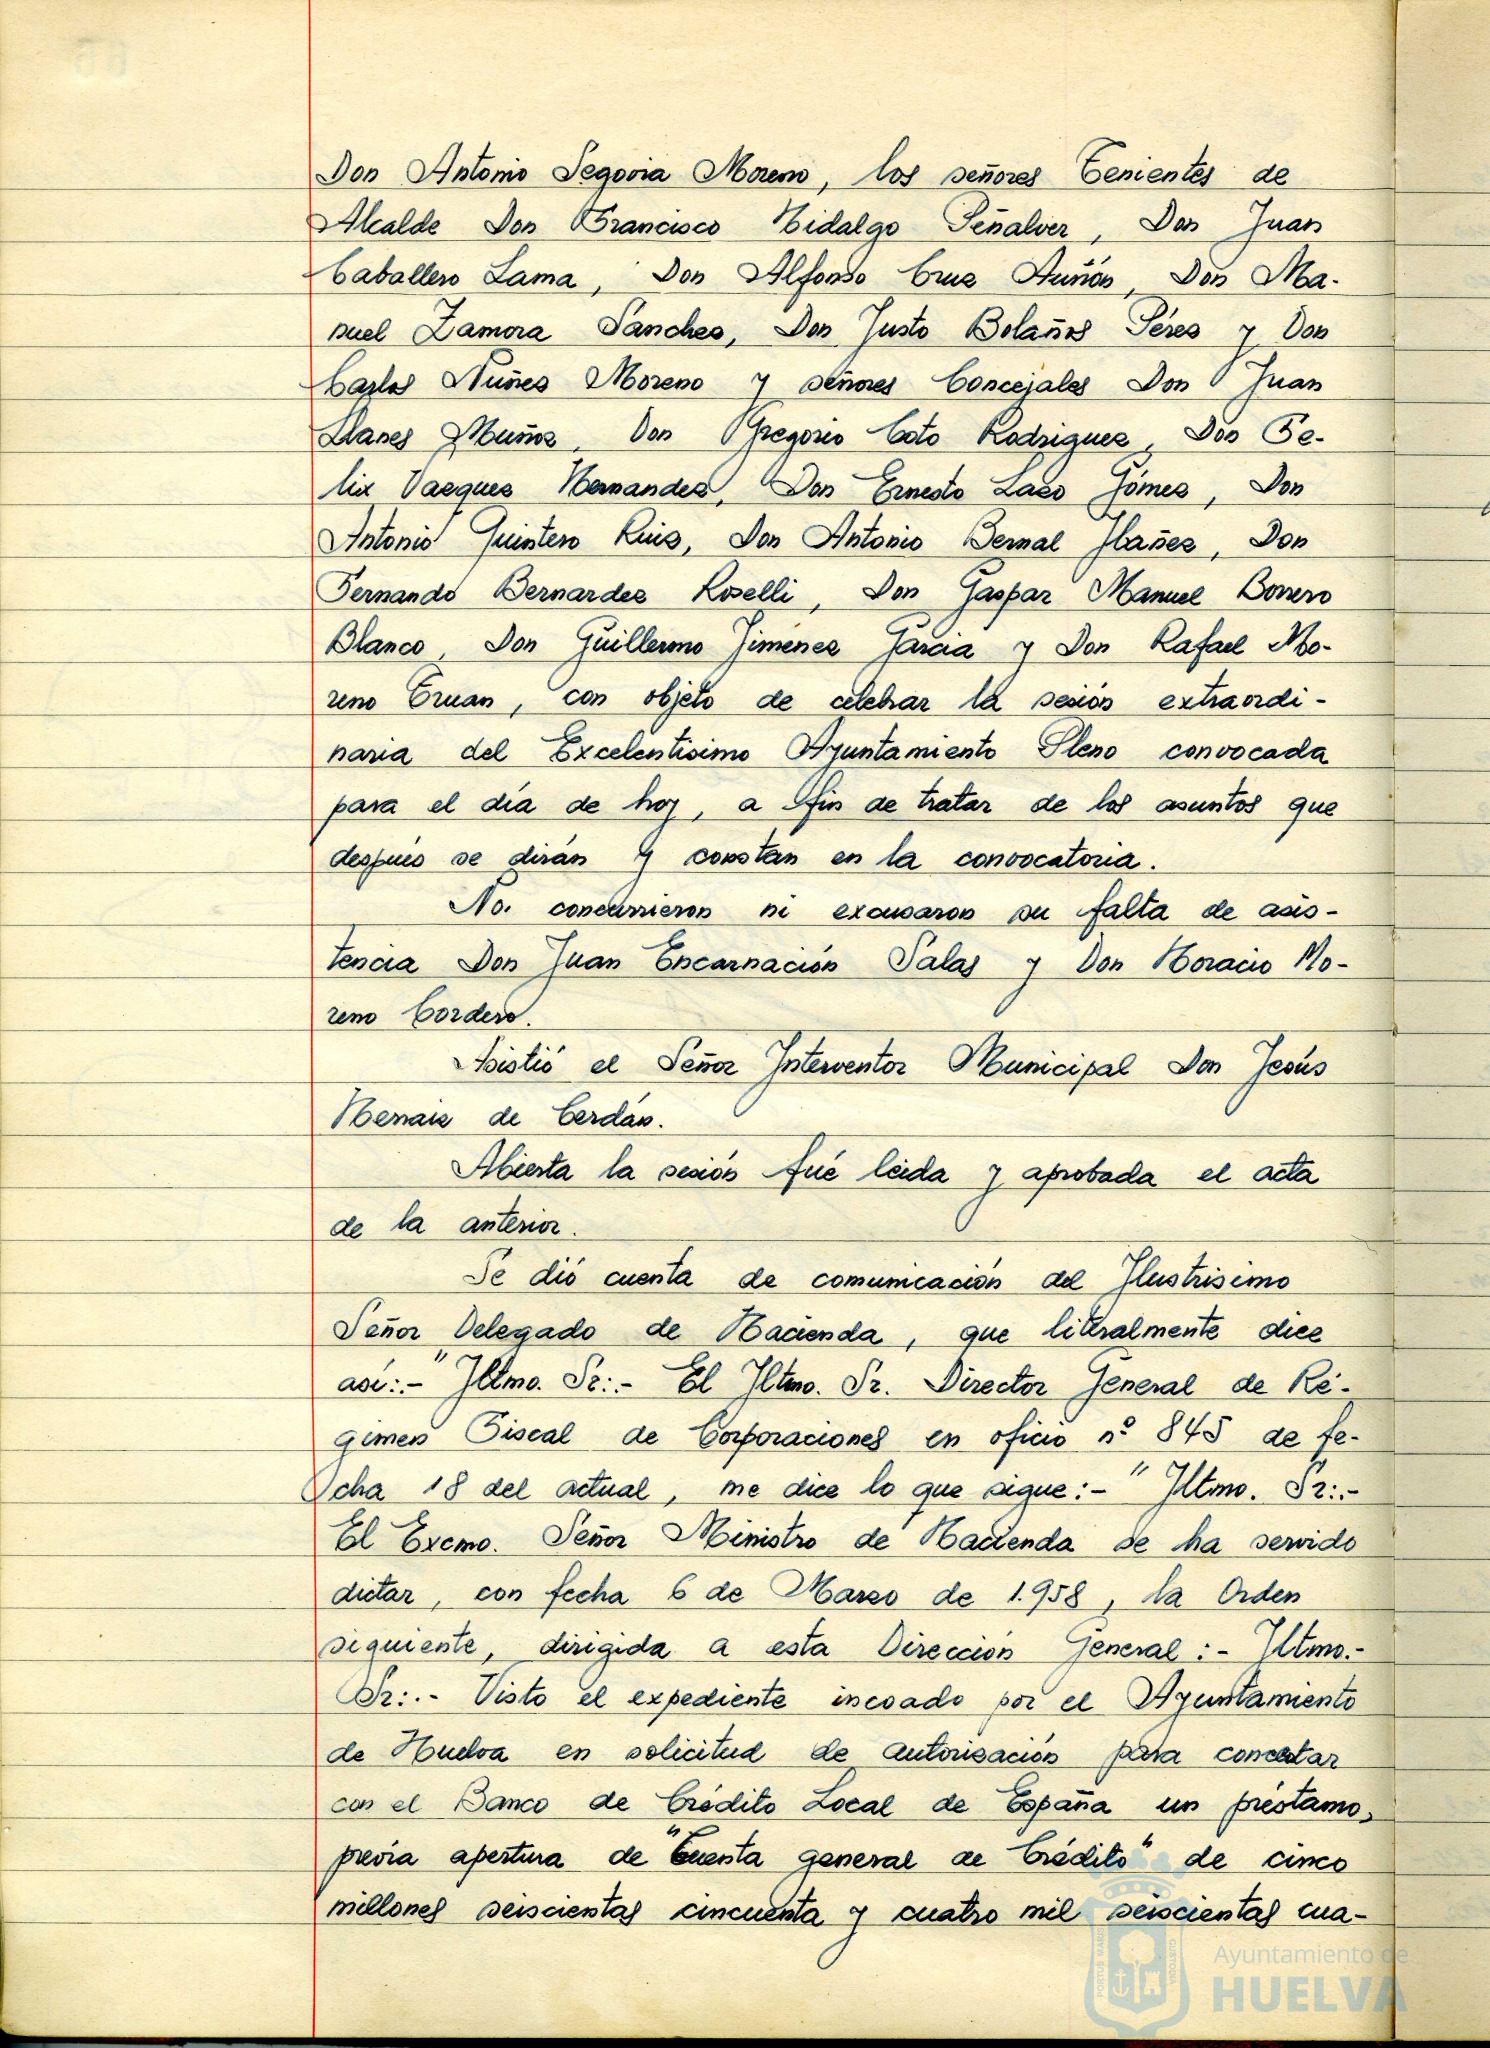 Don Antonio Segovia Moreno, los señores Tenientes de
Alcalde Don Francisco Hidalgo Peñalver, Don Juan
Caballero Lama, Don Alfonso Cruz Auñón, Don Ma-
nuel Zamora Sanchez, Don Justo Bolaños Pérez y Don
Carlos Nuñez Moreno y señores Concejales Don Juan
Llanes Muñoz, Don Gregorio Coto Rodriguez, Don Fe-
lix Vazquez Hernandez, Don Ernesto Lazo Gómez, Don
Antonio Quintero Ruiz, Don Antonio Bernal Ybañez, Don
Fernando Bernardez Roselli, Don Gaspar Manuel Borrero
Blanco, Don Guillermo Jimenez Garcia y Don Rafael Mo-
reno Eruan, con objeto de celebrar la sesión extraordi-
naria del Excelentisimo Ayuntamiento Pleno convocada
para el día de hoy, a fin de tratar de los asuntos que
después se dirán y constan en la convocatoria.
No. concurrieron ni excusaron su falta de asis-
tencia Don Juan Encarnación Salas y Don Horacio Mo-
reno Cordero.
Asistió el Señor Interventor Municipal Don Jesús
Hernaiz de Cerdán.
Abierta la sesión fué leida y aprobada el acta
de la anterior.
Se dió cuenta de comunicación del Ilustrisimo
Señor Delegado de Hacienda, que literalmente dice
así:.- "Iltmo. Sr:.- El Iltmo. Sr. Director General de Ré-
gimen Fiscal de Corporaciones en oficio nº 845 de fe-
cha 18 del actual, me dice lo que sigue:- "Iltmo. Sr:.-
El Excmo. Señor Ministro de Hacienda se ha servido
dictar, con fecha 6 de Marzo de 1.958, la Orden
siguiente, dirigida a esta Dirección General:- Iltmo.-
Sr:.- Visto el expediente incoado por el Ayuntamiento
de Huelva en solicitud de autorización para concertar
con el Banco de Crédito Local de España un préstamo,
previa apertura de "Cuenta general de Crédito" de cinco
millones seiscientas cincuenta y cuatro mil seiscientas cua-
PORTUS MARIS
CUSTODIA
Ayuntamiento de
HUELVA